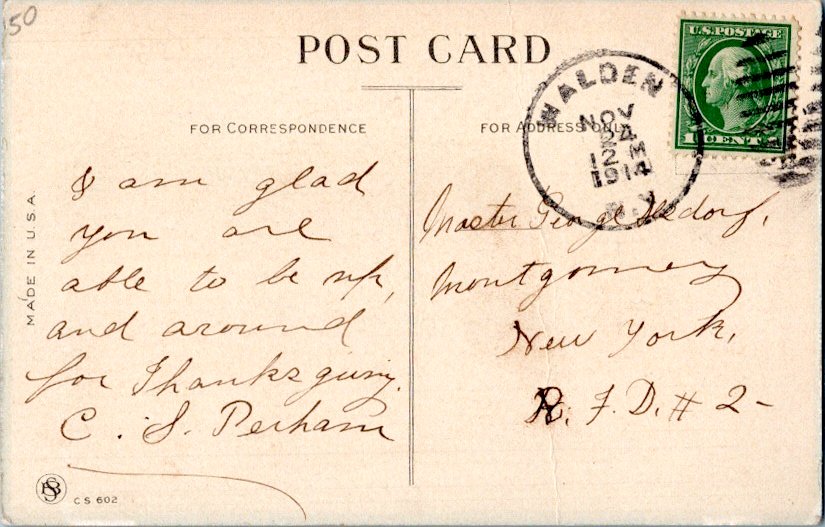 50
POST CARD
U.S. POSTAGE
1 CENT 1
WALDEN
NOV
24
12 M
1914
N.Y.
FOR CORRESPONDENCE
FOR ADDRESS ONLY
MADE IN U.S.A.
I am glad
you are
able to be up,
and around
for Thanksgiving.
C. S. Perham
Master George
Montgomery
New York,
R. F. D. # 2-
CS 602